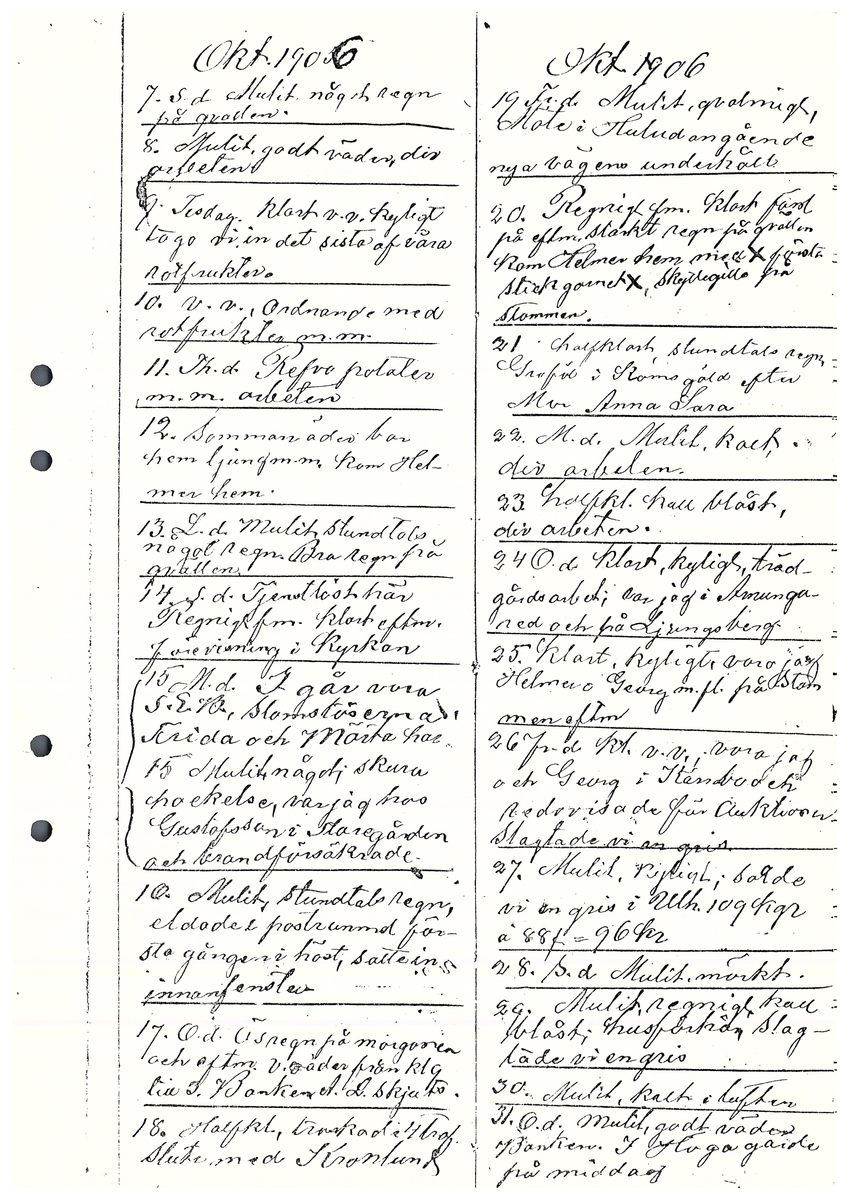 Okt. 1906
7. S.d Mulit. något regn
på qvällen.
8. Mulit, godt väder, div
arbeten
9. Tisdag. Klart v.v. Kyligt
togo vi in det sista af våra
rotfrukter.
10. v. v., Ordnande med
rotfrukter m.m.
11. Th.d. Refvo potater
m.m. arbeten
12. Sommarväder bar
hem ljung m.m. Kom Hel-
mer hem.
13. L.d. Mulit, stundtals
något regn. Bra regn på
qvällen.
14. S.d. Tjenstlöst här
Regnigt fm. klart eftm.
förevisning i Kyrkan
15 M.d. I går vora
S.E.B., Slomstöserna
Frida och Märta här
15 Mulit, något skura
hackelse, var jag hos
Gustafsson i Staregården
och brandförsäkrade.
16. Mulit, stundtals regn,
eldade i postrummd för-
sta gången i höst, satte in
innanfenster
17. O.d. Ösregn på morgonen
och eftm. v. väder från klg
tia I. Banken A. L. Skjuts.
18. Halfkl, traskade
Slute med Kronlund
Okt 1906
19 Fr.d. Mulit, qvalmigt,
Möte i Hulud angående
nya vägens underhåll
20. Regnigt fm. Klart
på eftm. starkt regn på qvällen
Kom Helmer hem med X första
stickgarnet X, Skyttegille på
stommen.
21 halfklart, stundtals regn,
Graföl i Komsgöld efter
Mor Anna Sara
22. M.d. Mulit, kalt,
div arbeten.
23 halfkl. kall blåst,
div arbeten.
24 O.d. Klart, kyligt, träd-
gårdsarbet; var jag i Amunga-
red och på Ljungsberg
25. Klart, kyligt, voro jag
Helmer o Georg m.fl. på Stom
men eftm
26 Fr.d kl. v.v., vora jag
och Georg i Stämbo och
redovisade för Auktionen
Slagtade vi en gris.
27. Mulit, kyligt; sålde
vi en gris i Ulh. 109 kgr
à 88f = 96 kr
28. S.d Mulit, mörkt.
29. Mulit, regnigt, kall
blåst; husförhör, Slag-
tade vi en gris
30. Mulit, kalt i luften
31. O.d. Mulit, godt väder
Banken. I Haga gärde
på middag